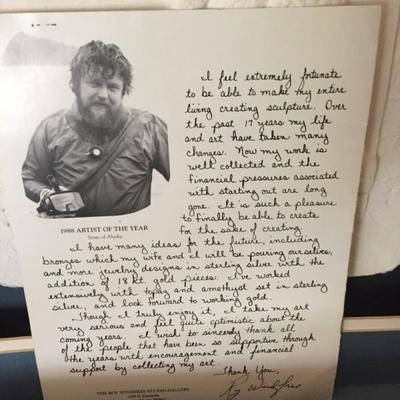 I feel extremely fortunate
to be able to make my entire
living creating sculpture. Over
the past 17 years my life
and art have taken many
changes. Now my work is
well collected and the
financial pressures associated
with starting out are long
gone. It is such a pleasure
to finally be able to create
for the sake of creating.
1988 ARTIST OF THE YEAR
State of Alaska
I have many ideas for the future, including
bronzes which my wife and I will be pouring ourselves,
and more jewelry designs in sterling silver with the
addition of 18 kt. gold pieces. I've worked
extensively with topaz and amethyst set in sterling
silver, and look forward to working gold.
Though I truly enjoy it, I take my art
very serious and feel quite optimistic about the
coming years. I wish to sincerely thank all
of the people that have been so supportive through
the years with encouragement and financial
support by collecting my art.
Thank You,
THE ROY WINDFREE STUDIO/GALLERY